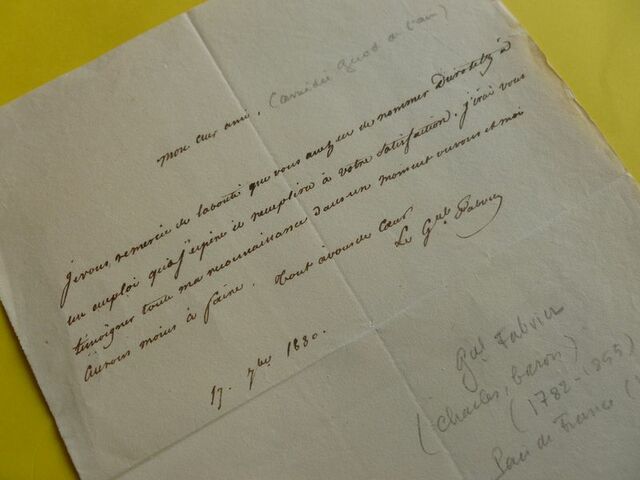 Mon cher ami, (amédée
Je vous remercie de la bonté que vous avez eu de nommer à
un emploi qu'il j'espère à votre satisfaction. j'irai vous
témoigner toute ma reconnaissance dans un moment ou vous et moi
aurons moins à faire. tout à vous de cœur
Le Gal Fabvier
17. 7bre 1830.
Gal Fabvier
(Charles, baron)
(1782-1855)
Pair de France (